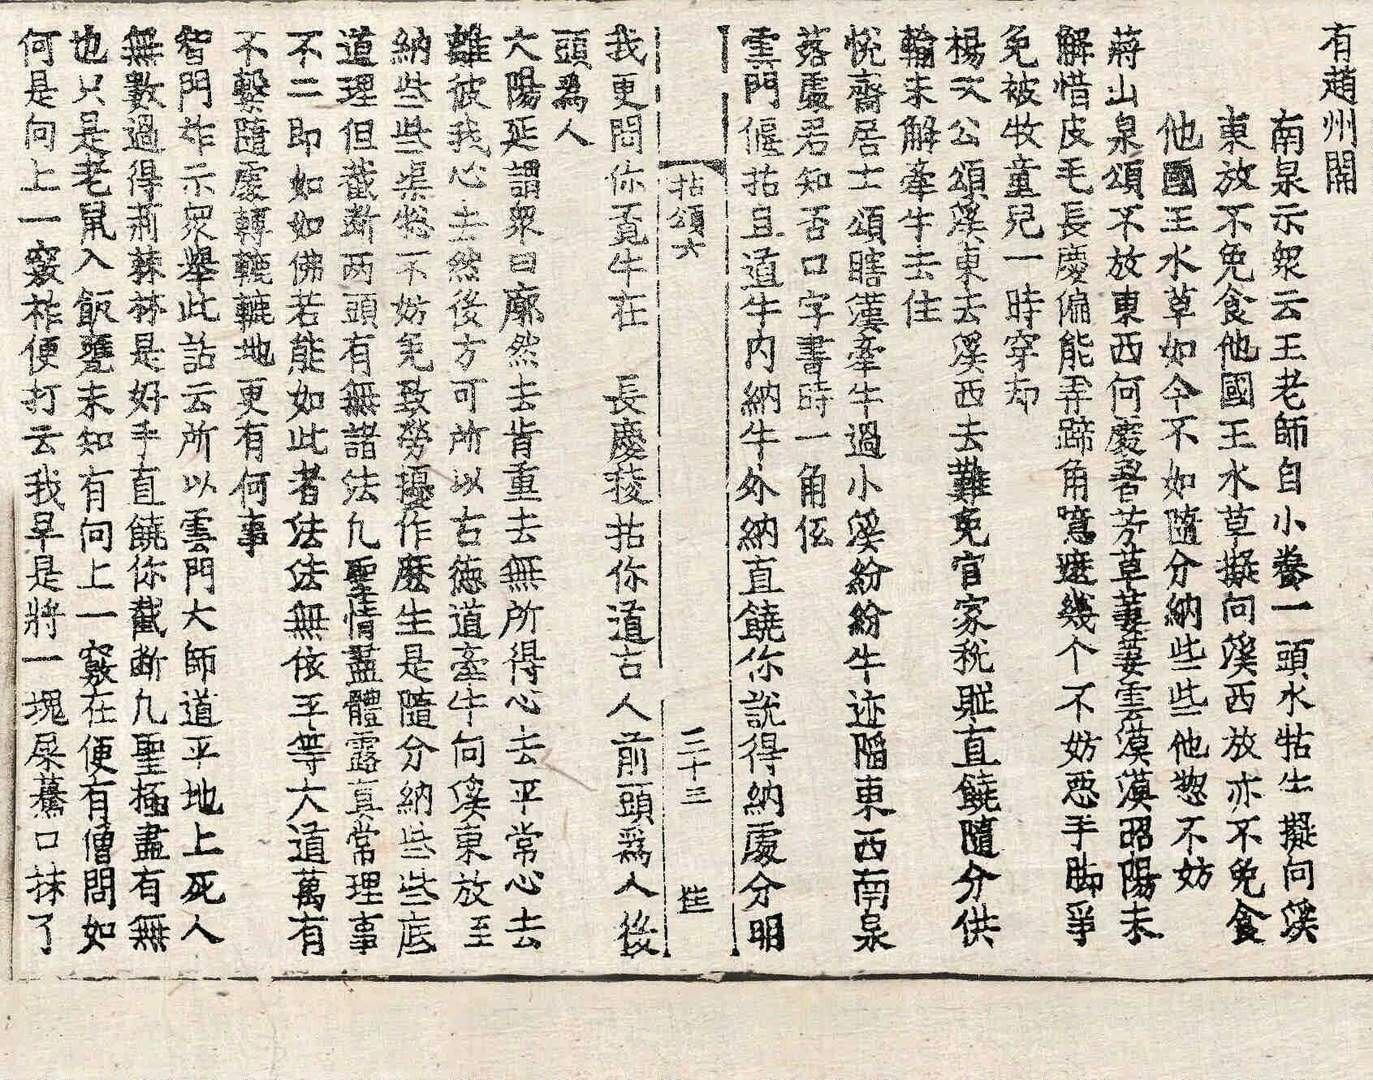 有趙州開
南泉示眾云王老師自小養一頭水牯牛擬向溪
東放不免食他國王水草擬向溪西放亦不免食
他國王水草如今不如隨分納些些他惣不妨
蔣山泉頌不放東西何處著芳草萋萋雲漠漠昭陽未
解惜皮毛長慶偏能弄蹄角鴻遮幾个不妨惡手脚爭
免被牧童兒一時穿却
楊文公頌溪東去溪西去難免官家稅賦直饒隨分供
輸未解牽牛去住
悅齋居士頌瞎漢牽牛過小溪紛紛牛迹陷東西南泉
落處君知否口字書時一角低
雲門偃拈且道牛內納牛外納直饒你說得納處分明
拈頌六
二十三
我更問你覓牛在 長慶稜拈你道古人前頭爲人後
頭爲人
大陽延謂眾曰廓然去肯重去無所得心去平常心去
離彼我心去然後方可所以古德道牽牛向溪東放至
納些些渠惣不妨免致勞擾作麼生是隨分納些些底
道理但截斷两頭有無諸法凡聖情盡體露真常理事
不二即如如佛若能如此者法法無依平等大道萬有
不繫隨處轉轆轆地更有何事
智門祚示眾舉此話云所以雲門大師道平地上死人
無數過得荊棘林是好手直饒你截斷凡聖極盡有無
也只是老鼠入飯甕未知有向上一竅在便有僧問如
何是向上一竅祚便打云我早是將一塊屎驀口抹了